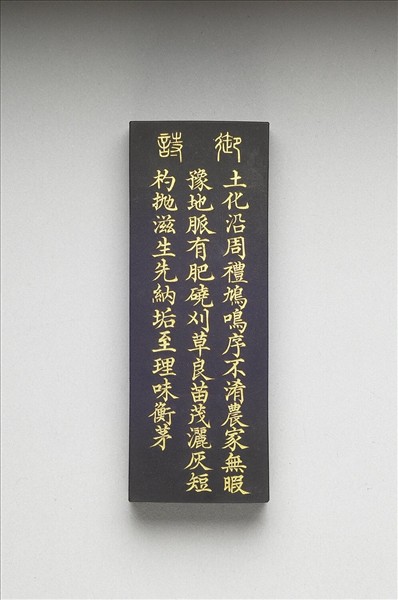 御詩
土化沿周禮鳩鳴序不淆農家無暇
豫地脈有肥磽刈草良苗茂灑灰短
杓拋滋生先納垢至理味衡茅